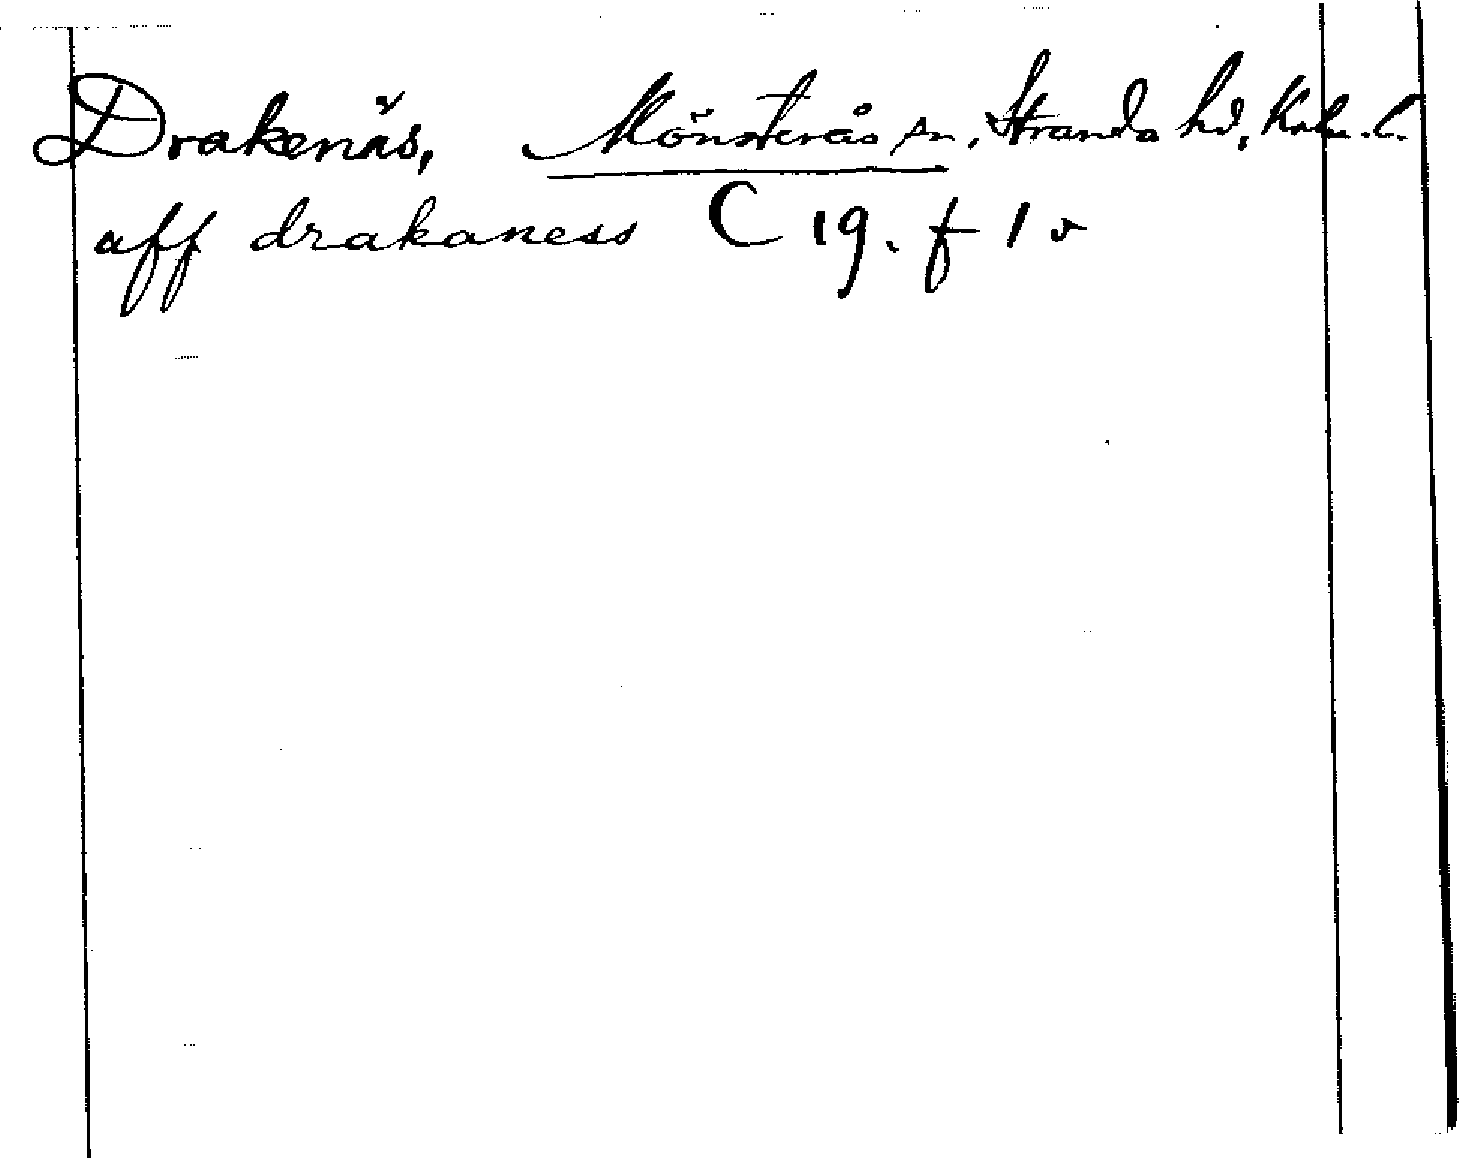 Drakenäs, Mönsterås sn, Stranda hd, Kalm. l.
aff drakaness C 19. f 1 v